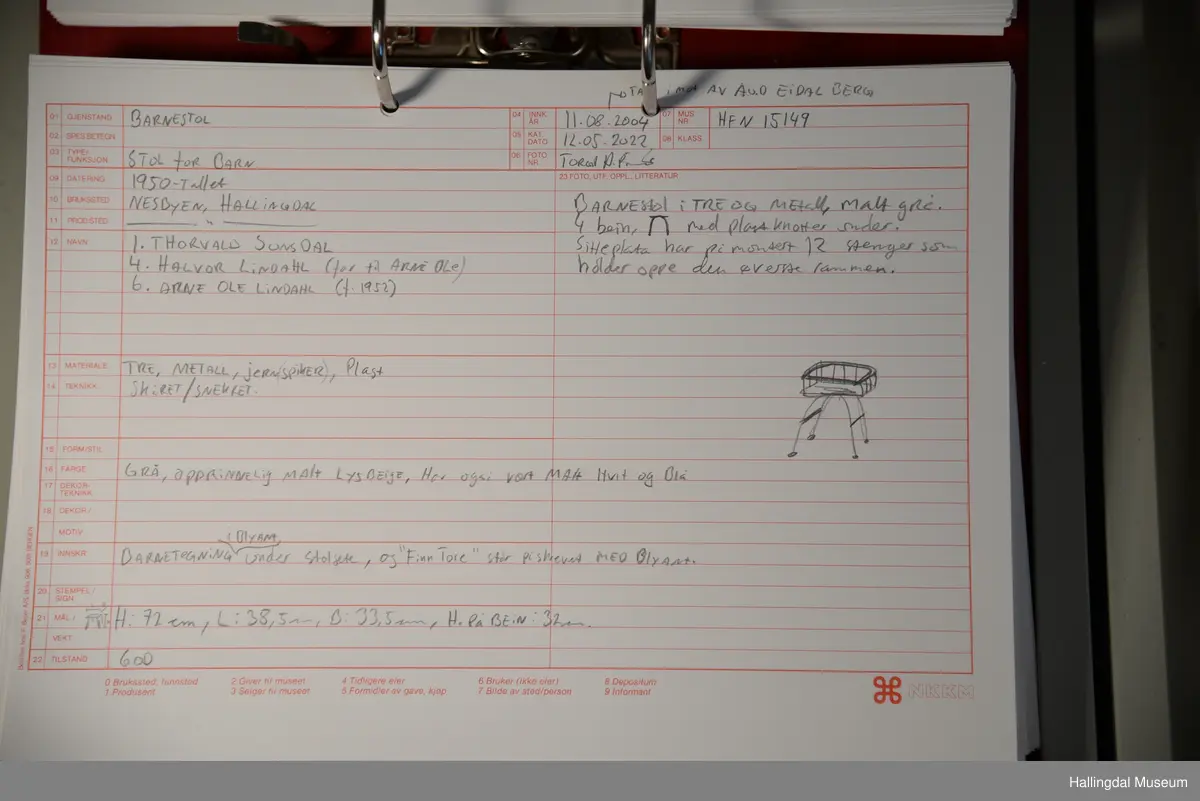 TATT IMOT AV AUD EIDAL BERG
01 GJENSTAND BARNESTOL 04 INNK. ÅR 11.08.2004 07 MUS NR. HFN 15149
02 SPES.BETEGN 05 KAT. DATO 12.05.2022 08 KLASS
03 TYPE/FUNKSJON STOL FOR BARN 06 FOTO NR. Torod
09 DATERING 1950-Tallet 23 FOTO, UTF. OPPL., LITTERATUR
10 BRUKSSTED NESBYEN, HALLINGDAL BARNEStol i TRE OG METALL, MALT grå.
11 PROD.STED — " — 4 bein, ∩ med plastknotter under.
12 NAVN 1. THORVALD SUNSDAL Sitteplata har påmontert 12 stenger som
4. HALVOR LINDAHL (far til ARNE OLE) holder oppe den øverste rammen.
6. ARNE OLE LINDAHL (f. 1952)
13 MATERIALE TRE, METALL, jern(spiker), Plast
14 TEKNIKK SKÅRET/SNEKRET.
15 FORM/STIL
16 FARGE GRÅ, OPPRINNELIG MALT LYSBEIGE, Har også vært MALT Hvit og Blå
17 DEKOR-TEKNIKK
18 DEKOR/
MOTIV
i Blyant
19 INNSKR. BARNETEGNING under stolsete, og "Finn Tore" står påskrevet MED Blyant.
20 STEMPEL/SIGN
21 MÅL/ H: 72 cm, L: 38,5cm, B: 33,5cm, H. På BEIN: 32cm.
VEKT
22 TILSTAND GOD
0 Brukssted, funnsted 2 Giver til museet 4 Tidligere eier 6 Bruker (ikke eier) 8 Depositum
1 Produsent 3 Selger til museet 5 Formidler av gave, kjøp 7 Bilde av sted/person 9 Informant
NKKM
Hallingdal Museum